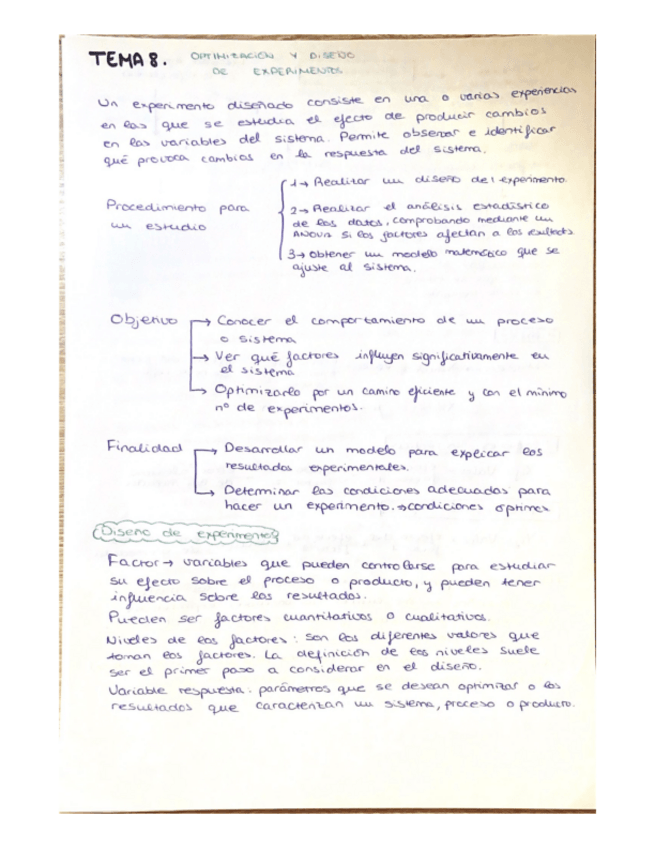 TEMA 8. OPTIMIZACIÓN Y DISEÑO
DE EXPERIMENTOS
Un experimento diseñado consiste en una o varias experiencias
en las que se estudia el efecto de producir cambios
en las variables del sistema. Permite observar e identificar
qué provoca cambios en la respuesta del sistema.
Procedimiento para
un estudio
1→ Realizar un diseño del experimento.
2→ Realizar el análisis estadístico
de los datos, comprobando mediante un
ANOVA si los factores afectan a los resultados
3→ Obtener un modelo matemático que se
ajuste al sistema.
Objetivo → Conocer el comportamiento de un proceso
o sistema
→ Ver qué factores influyen significativamente en
el sistema
→ Optimizarlo por un camino eficiente y con el mínimo
nº de experimentos.
Finalidad → Desarrollar un modelo para explicar los
resultados experimentales.
→ Determinar las condiciones adecuadas para
hacer un experimento. → condiciones óptimas
Diseño de experimentos
Factor → variables que pueden controlarse para estudiar
su efecto sobre el proceso o producto, y pueden tener
influencia sobre los resultados.
Pueden ser factores cuantitativos o cualitativos.
Niveles de los factores: son los diferentes valores que
toman los factores. La definición de los niveles suele
ser el primer paso a considerar en el diseño.
Variable respuesta: parámetros que se desean optimizar o los
resultados que caracterizan un sistema, proceso o producto.